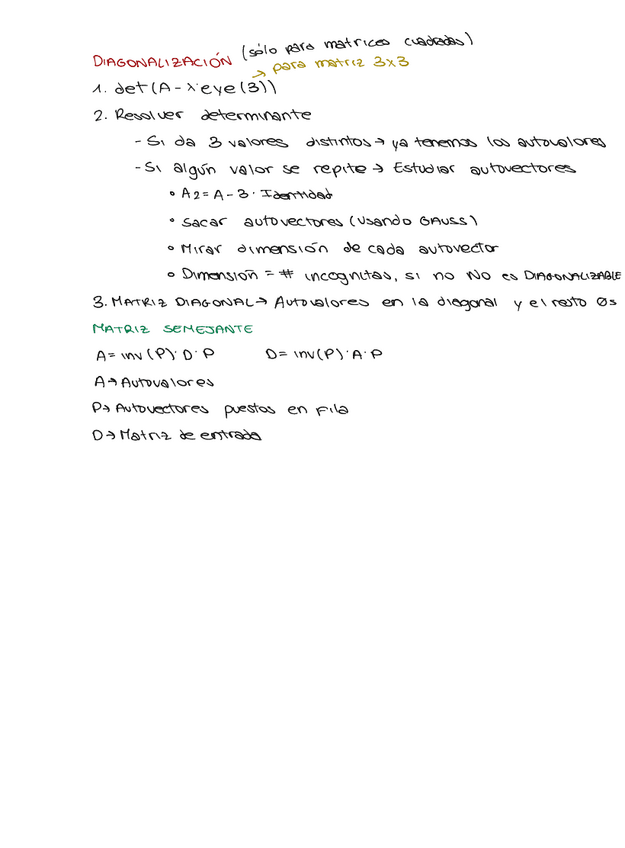 DIAGONALIZACIÓN (sólo para matrices cuadradas)
→ para matriz 3x3
1. det(A-λ·eye(3))
2. Resolver determinante
- Si da 3 valores distintos → ya tenemos los autovalores
- Si algún valor se repite → Estudiar autovectores
• A2 = A - 3 · Identidad
• Sacar autovectores (usando GAUSS)
• Mirar dimensión de cada autovector
• Dimensión = # incognitas, si no NO es DIAGONALIZABLE
3. MATRIZ DIAGONAL → Autovalores en la diagonal y el resto 0s
MATRIZ SEMEJANTE
A = inv(P)·D·P D = inv(P)·A·P
A → Autovalores
P → Autovectores puestos en Fila
D → Matriz de entrada